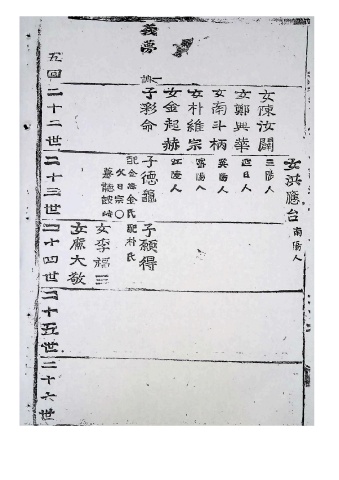 義夢
五回
二十二世
女陳汝闢
三陟人
女鄭興華
迎日人
女南斗柄
英陽人
女朴維宗
密陽人
女金起赫
江陵人
子彩命
二十三世
女洪應台
南陽人
子德龜
配金海金氏
父日宗〇
二十四世
子願得
配朴氏
女李福三
女廉大敬
二十五世
二十六世